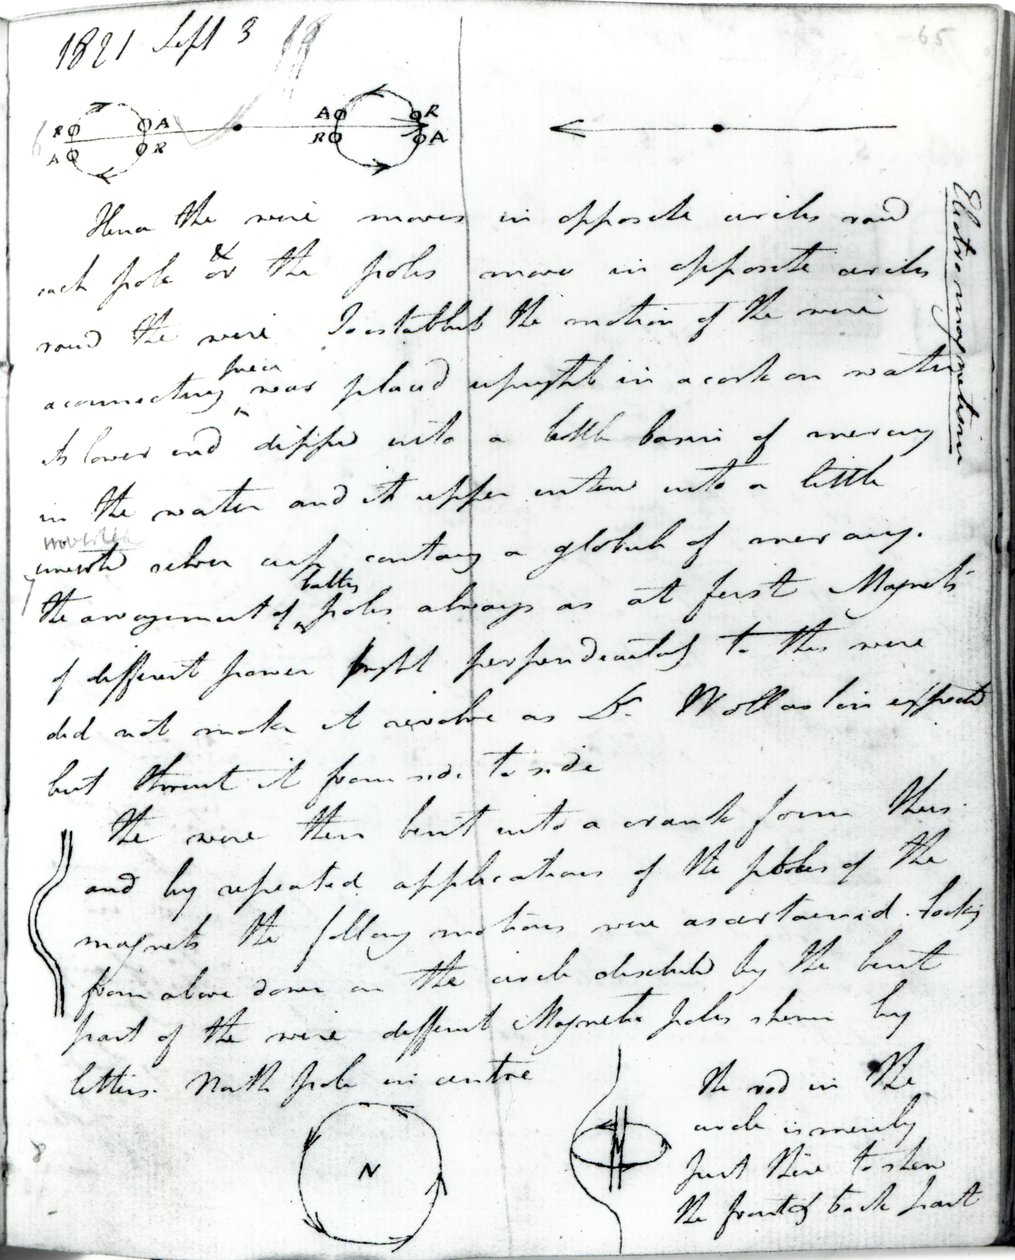 65
1821 Sept 3
R A A R
A R R A
Electro magnetism
Hence the wire moves in opposite circles round
each pole & or the poles move in opposite circles
round the wire To establish the motion of the wire
a connecting piece was placed upright in a cork on water
its lower end dipped into a little basin of mercury
in the water and its upper entered into a little
silver cup containg a globule of mercury.
the arrangement of battery poles always as at first Magnets
of different power brought perpendicularly to this wire
did not make it revolve as Dr. Wollaston expected
but thrust it from side to side
The wire then bent into a crank form thus
and by repeated applications of the poles of the
magnets the followng motions were ascertained. looking
from above down on the circle described by the bent
part of the wire different Magnetic poles shewn by
letters. North pole in centre
N
N
The rod in the
circle is merely
put there to shew
the front & back part
6
7
8